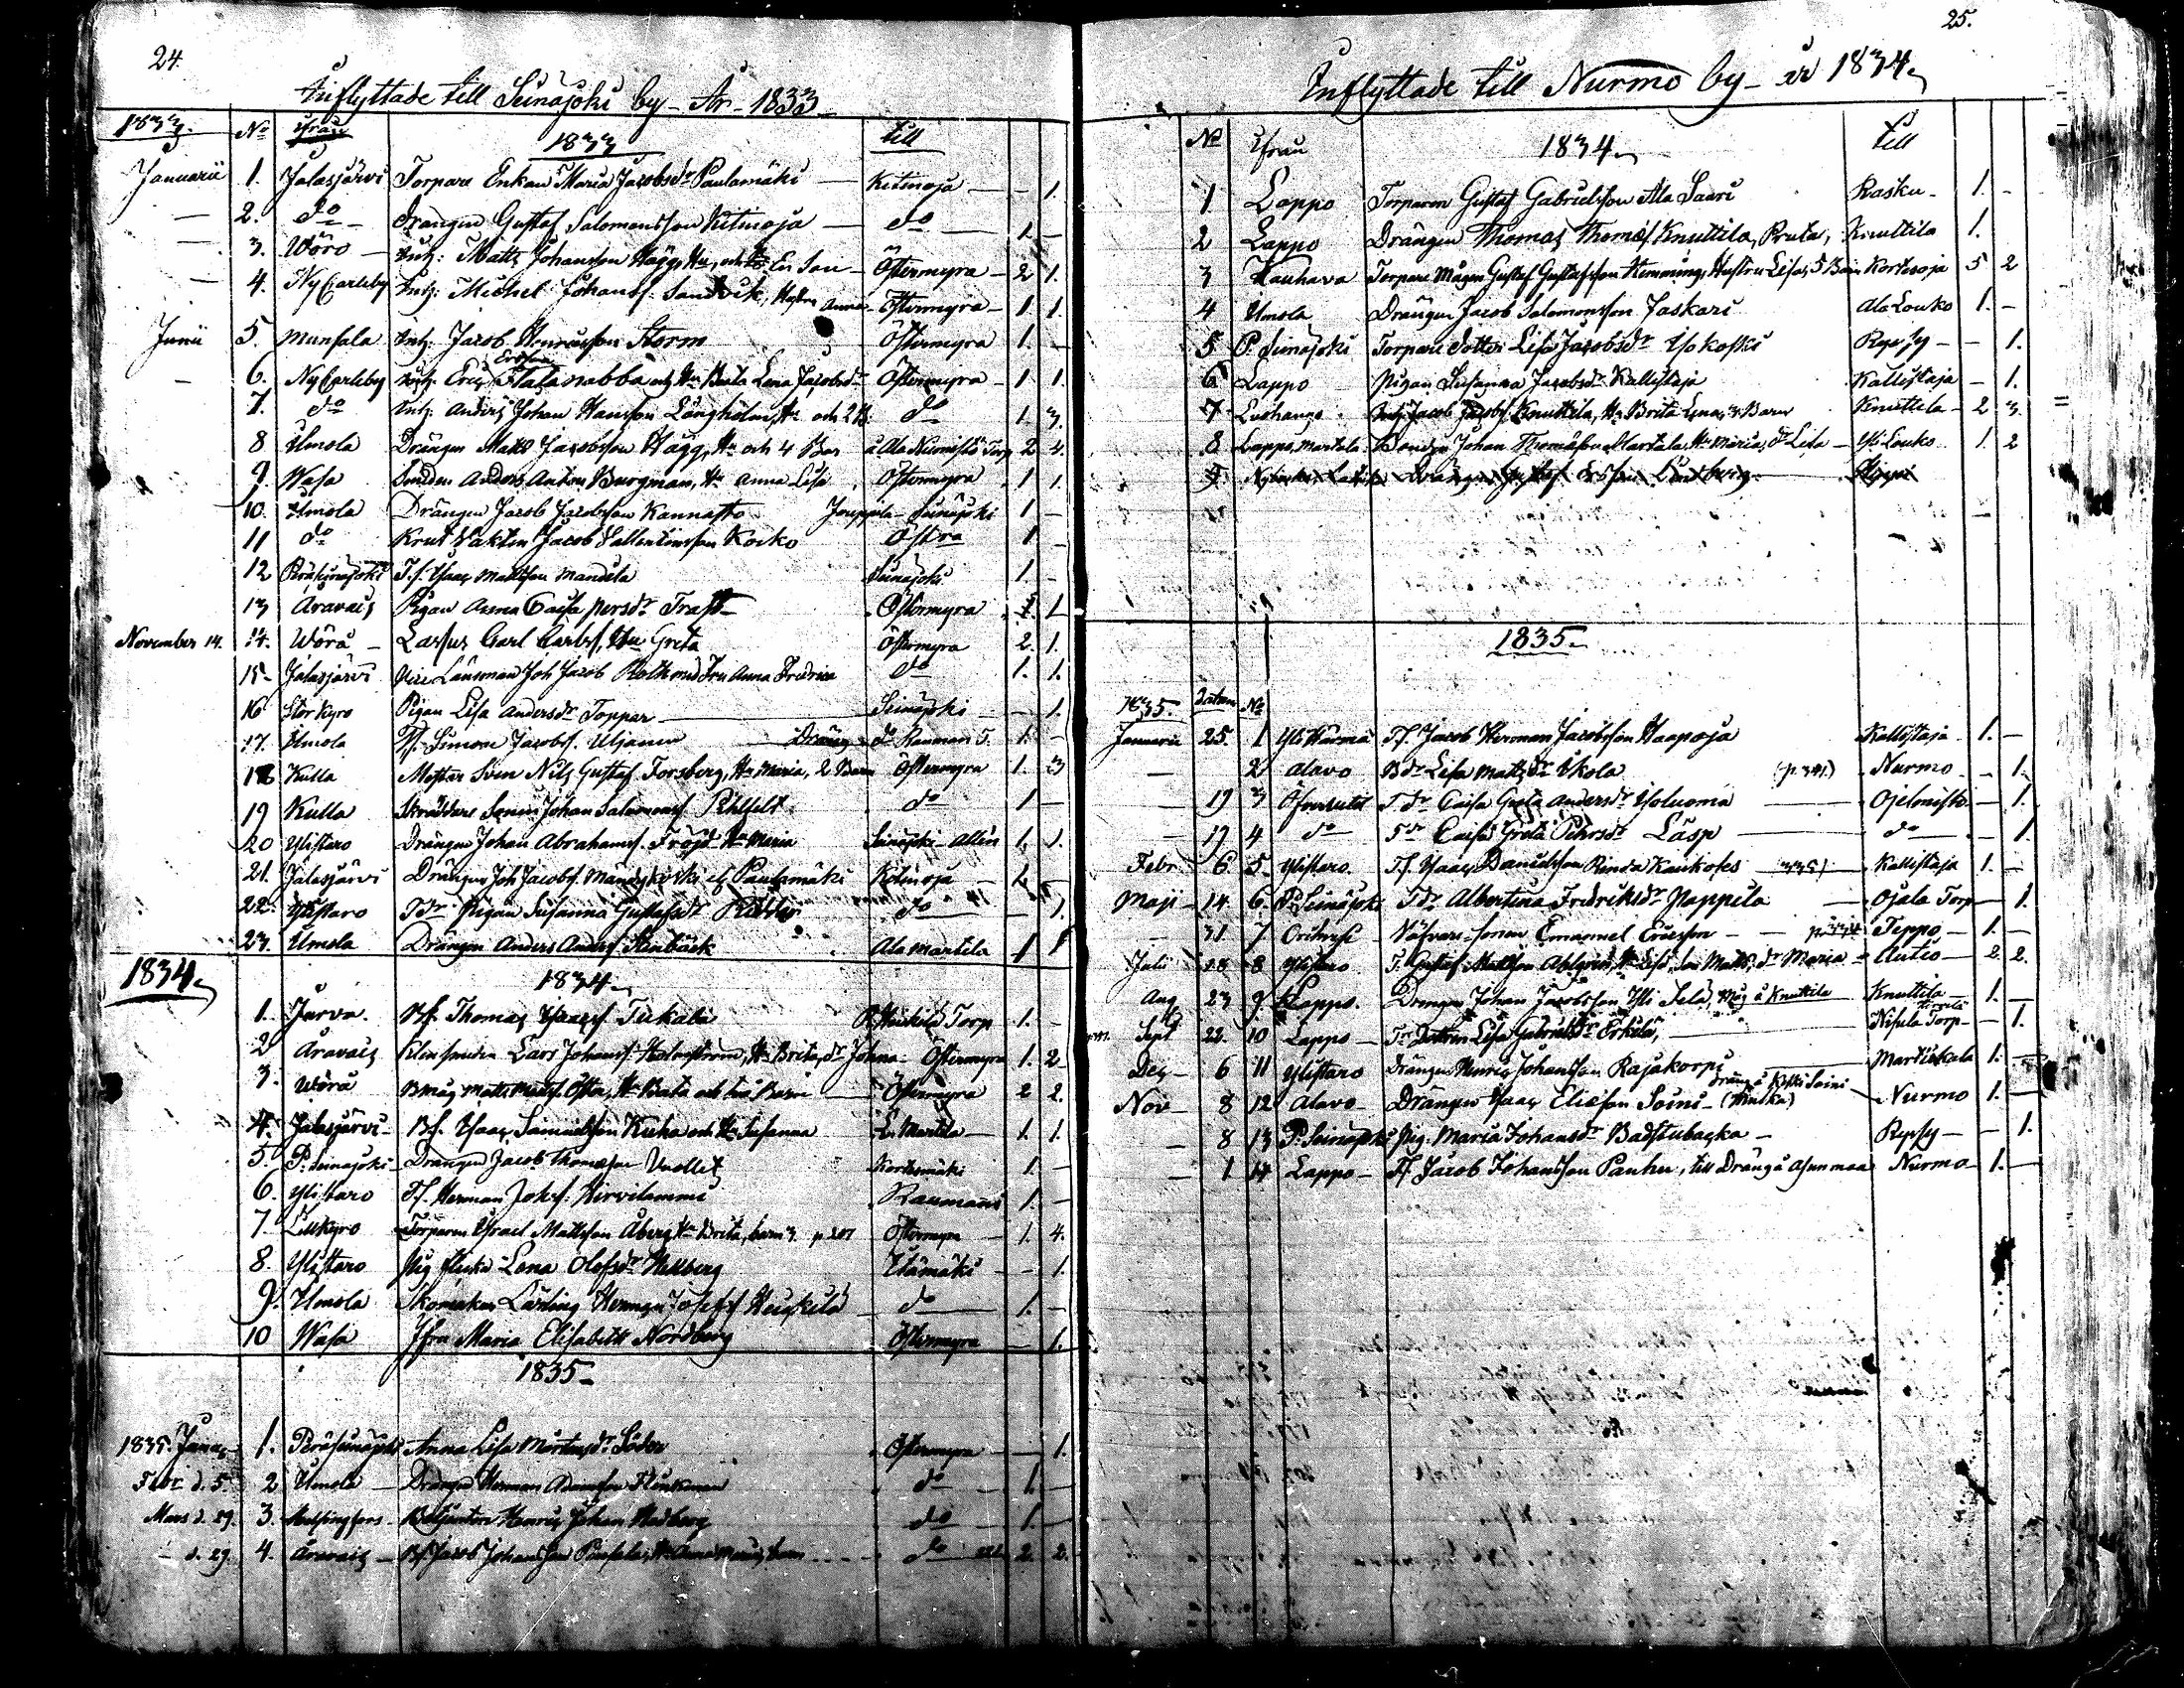 24.
Inflyttade till Seinäjoki by - År - 1833
1833. No ifrån 1833 till
Januarii 1. Jalasjärvi Torpare Enkan Maria Jacobsdr Paulamäki — Kitinoja — - 1.
— 2. do Drängen Gustaf Salomonsson Kitinoja — do — 1 -
— 3. Wörå — Inh: Matts Johansson Hägg, Hu, och En Son — Östermyra — 2 1.
— 4. NyCarleby Inh: Michel Johanss: Sandvik, Hustru Anna — Östermyra — 1 1.
Junii 5. Munsala Inh: Jacob Henricsson Storm Östermyra 1. -
— 6. NyCarleby Inh: Eric Ersson Flatanabba och Hu Brita Lena Jacobsdr Östermyra — 1 1
7. do Inh: Anders Johan Hansson Långholm, Hu och 2 B. do 1. 3.
8 Ilmola Drängen Matts Jacobsson Hägg, Hu och 4 Bar å Ala Niemistö Torp 2 4.
9. Wasa Anders Anton Bergman, Hu Anna Lisa Östermyra 1 1
10. Ilmola Drängen Jacob Jacobsson Kannasto Jouppila - Seinäjoki 1 —
11 do Krut Vakten Jacob Koiko Östra 1 -
12 Peräseinäjoki T.s. Isaac Mattsson Mandila Seinäjoki 1. -
13 Äravais Pigan Anna Caisa Persdr Trast — Östermyra 1
November 14. 14. Wörå — Carl Carlss, Hu Greta Östermyra 2. 1.
15 - Jalasjärvi Vice Länsman Joh Jacob Roth med Fru Anna Fredrica do 1. 1.
16 Stor Kyro Pigan Lisa Andersdr Toppar — Seinäjoki — - 1.
17. Ilmola Ts. Simon Jacobs. Uljanen — Dräng — do Raumani T. 1. -
18 Kulla Mästar Sven Nils Gustaf Forsberg, Hu Maria, 2 Barn Östermyra 1. 3
19 Kulla Skräddare Johan Salomonss. do 1 —
20 Ylistaro Drängen Johan Abrahamss. Fröjd Hu Maria Seinäjoki 1. 1.
21. Jalasjärvi Drängen Joh Jacobs. Mändykoski el. Paulamäki Kitinoja — 1 -
22. Ylistaro Tdr Pigan Susanna Gustafsdr do — 1.
23. Ilmola Drängen Anders Anders. Stenbäck Ala Martila 1 1
1834. 1834.
1. Jurva. Bs. Thomas Isaacs. Tukala Torp 1. -
2 Äravais Lars Johanss. Holmström, Hu Brita, dr Johna — Östermyra 1. 2
3. Wörå Bmåg Matts Matss. Östen, Hu Brita och två Barn — Östermyra 2 2.
4. Jalasjärvi - Bs. Isaac Samuelsson Kuha och Hu Susanna L. Martila 1. 1.
5. P: Seinäjoki - Drängen Jacob Thomæson Kortesmäki 1. —
6. Ylistaro Ts. Herman Johs. Hirvilammi Raumani 1. —
7. Lillkyro Torparen Israel Mattsson Åberg, Hu Brita, barn 3. Östermyra — 1. 4.
8. Ylistaro Pig flicka Lena Olofsdr Hellberg - 1.
9. Ilmola Skomakare Lärling Herman Josefss Heickilä do 1. —
10 Wasa Jfru Maria Elisabeth Nordberg Östermyra — 1.
1835 -
1835. Janu. 1. Peräseinäjoki Anna Lisa Mårtensdr Söder Östermyra — 1.
Febr d. 5. 2 Ilmola — Drängen Herman do 1. —
Mars d. 29. 3. Helsingfors - Betjenten Henric Johan Hedberg do 1. —
— d. 29. 4. Äravais — Bs. Jacob Johansson do 2. 2.
25.
Inflyttade till Nurmo by - år 1834.
No ifrån 1834. till
1 Lappo Torparen Gustaf Gabrielsson Ala Saari Rasku - 1. -
2 Lappo Drängen Thomas Thomæs. Knuttila, Pruta, Knuttila 1.
3 Kauhava Torpare Mågen Gustaf Gustafsson Hemming, Hustru Lisa, 5 Barn Kortesoja 5 2
4 Ilmola Drängen Jacob Salomonsson Jaskari Ala Louko 1. -
5 P. Seinäjoki Torpare Dotter Lisa Jacobsdr Isokoski — - 1.
6 Lappo Pigan Susanna Jacobsdr Kallistaja Kallistaja — 1.
7 Inh: Jacob Jacobs. Knuttila, Hu Brita Lena, 3 Barn Knuttila — 2 3.
8 Lappo, Martala Bonden Johan Thomæson Martala, Hu Maria, dr Lisa — Yli Louko 1. 2
1835 -
1835. Datum No
Januarii 25. 1 Yli Härmä Ts. Jacob Herman Jacobsson Haapoja Kallistaja — 1. —
— 2 Alavo Bdr Lisa Mattsdr Skola (p. 341.) Nurmo — 1.
— 19 3 Tdr Caisa Greta Andersdr Isoluoma — Ojelmisto — 1.
— 17 4 do Sdr Caisa Greta Pehrsdr Läsp — do — 1.
Febr 6 5 Ylistaro. Ts. Isaac Danielsson Rinda Kaukoles 335) Kallistaja 1. —
Maji — 14 6. P. Seinäjoki Tdr Albertina Fredriksdr Pappila — Ojala Torp — 1.
31. 7 Orihvesi — Emanuel Ericsson — Teppo — 1. —
Julii 18 8 Ylistaro T. Gustaf Mattsson Ahlqvist, Hu Lisa, son Matts, dr Maria — Autio — 2. 2.
Aug 23 9. Lappo. Drängen Johan Jacobsson Yli Sela, Måg å Knuttila Knuttila — 1. —
Sept 22. 10 Lappo — Tr Dottren Lisa Gabrielsdr Erkilä, Nisula Torp — 1.
Dec — 6 11 Ylistaro Drängen Henric Johansson Rajakorpi Martickala 1. —
Nov — 8 12 Alavo — Drängen Isaac Eliæson Soini — Nurmo 1. —
— 8 13 P. Seinäjoki Pig. Maria Johansdr Badstubacka — — 1.
— 1 14 Lappo — Ts. Jacob Johansson Pauhu, till Dräng å Asunmaa Nurmo — 1. —